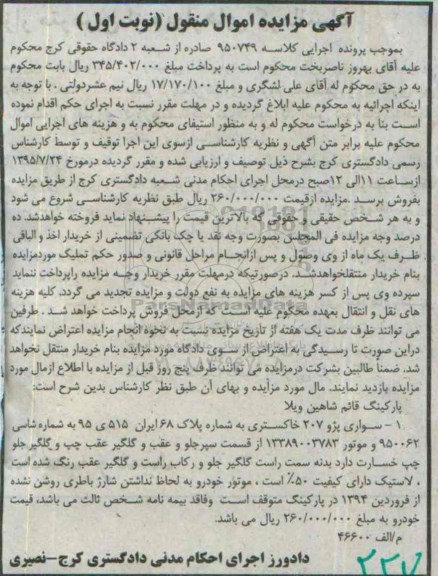 آگهی مزایده اموال منقول (نوبت اول)
بموجب پرونده اجرایی کلاسه ۹۵۰۷۴۹ صادره از شعبه ۲ دادگاه حقوقی کرج محکوم
علیه آقای بهروز ناصربخت محکوم است به پرداخت مبلغ ۳۴۵/۴۰۲/۰۰۰ ریال بابت محکوم
به در حق محکوم له آقای علی لشگری و مبلغ ۱۷/۱۷۰/۱۰۰ ریال نیم عشردولتی . با توجه به
اینکه اجرائیه به محکوم علیه ابلاغ گردیده و در مهلت مقرر نسبت به اجرای حکم اقدام نموده
است بنا به درخواست محکوم له و به منظور استیفای محکوم به و هزینه های اجرایی اموال
محکوم علیه برابر متن آگهی و نظریه کارشناسی ازسوی این اجرا توقیف و توسط کارشناس
رسمی دادگستری کرج بشرح ذیل توصیف و ارزیابی شده و مقرر گردیده درمورخ ۱۳۹۵/۷/۲۴
ازساعت ۱۱الی ۱۲صبح درمحل اجرای احکام مدنی شعبه دادگستری کرج از طریق مزایده
بفروش برسد .مزایده ازقیمت ۲۶۰/۰۰۰/۰۰۰ ریال طبق نظریه کارشناسی شروع می شود
و به هر شخص حقیقی و حقوقی که بالاترین قیمت را پیشنهاد نماید فروخته خواهدشد. ده
درصد وجه مزایده فی المجلس بصورت وجه نقد یا چک بانکی تضمینی از خریدار اخذ و الباقی
ظرف یک ماه از وی وصول و پس ازانجام مراحل قانونی و صدور حکم تملیک موردمزایده
بنام خریدار منتقلخواهدشد. درصورتیکه درمهلت مقرر خریدار وجه مزایده راپرداخت ننماید
سپرده وی پس از کسر هزینه های مزایده به نفع دولت و مزایده تجدید می گردد. کلیه هزینه
های نقل و انتقال بعهده محکوم علیه است که ازمحل فروش پرداخت خواهد شد . طرفین
می توانند ظرف مدت یک هفته از تاریخ مزایده نسبت به نحوه انجام مزایده اعتراض نمایندکه
دراین صورت تا رسیدگی به اعتراض از سوی دادگاه مورد مزایده بنام خریدار منتقل نخواهد
شد. ضمنا طالبین بشرکت درمزایده می توانند ظرف پنج روز قبل از مزایده با اطلاع ازمال مورد
مزایده بازدید نمایند. مال مورد مزایده و بهای آن طبق نظر کارشناس بدین شرح است:
پارکینگ قائم شاهین ویلا
۱ - سواری پژو ۲۰۷ خاکستری به شماره پلاک ۶۸ایران ۵۱۵ ی ۹۵ به شماره شاسی
۹۵۰۰۶۲ و موتور ۱۳۳۸۹۰۰۳۷۸۳ از قسمت سپرجلو و عقب و گلگیر عقب چپ و گلگیر جلو
چپ خسارت دارد بدنه سمت راست گلگیر جلو و رکاب راست و گلگیر عقب رنگ شده است
، لاستیک دارای کیفیت ۵۰٪ است ، موتور خودرو به لحاظ نداشتن شارژ باطری روشن نشده
از فروردین ۱۳۹۴ در پارکینگ متوقف است وفاقد بیمه نامه شخص ثالث می باشد، قیمت
خودرو به مبلغ ۲۶۰/۰۰۰/۰۰۰ ریال می باشد.
م/الف ۴۶۶۰۰
دادورز اجرای احکام مدنی دادگستری کرج-نصیری
۲۳۷